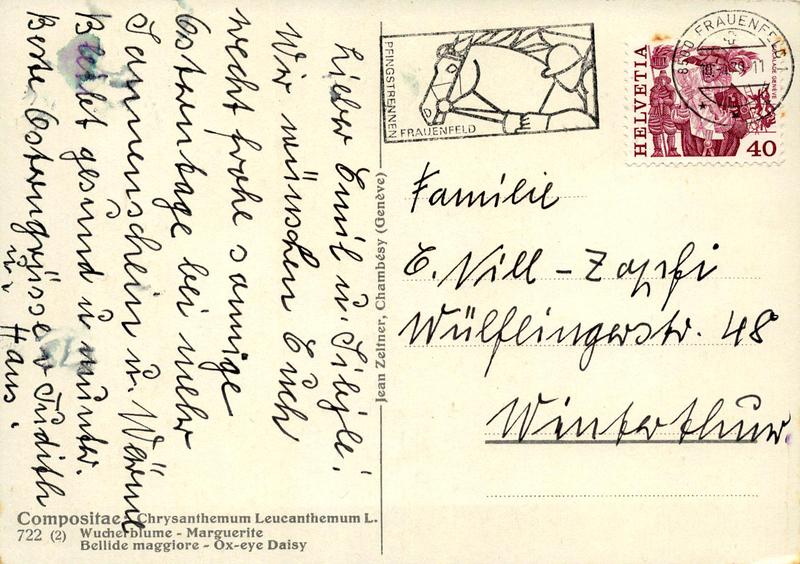 Lieber Emil u. Sibyle!
Wir wünschen Euch
recht frohe sonnige
Ostertage bei mehr
Sonnenschein u. Wärme
Bleibt gesund u. munter.
Beste Ostergrüsse v. Judith
u. Hans.
PFINGSTRENNEN
FRAUENFELD
8500 FRAUENFELD 1
HELVETIA
ESCALADE GENÈVE
40
Familie
E. Nill - Zopfi
Wülflingerstr. 48
Winterthur
Jean Zeltner, Chambésy (Genève)
Compositae - Chrysanthemum Leucanthemum L.
722 (2) Wucherblume - Marguerite
Bellide maggiore - Ox-eye Daisy